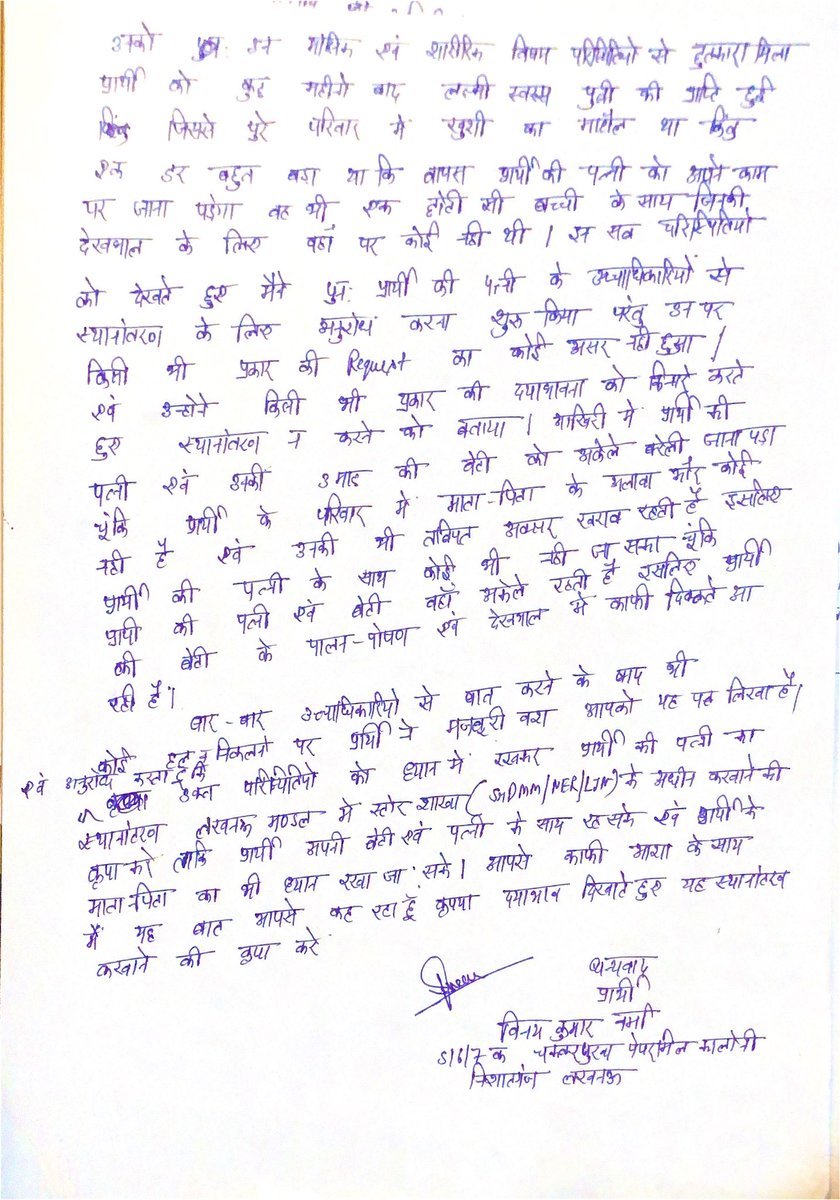 उनको पुनः उन मानसिक एवं शारीरिक विषम परिस्थितियो से छुटकारा मिला
प्रार्थी को कुछ महीनो बाद लक्ष्मी स्वरूप पुत्री की प्राप्ति हुई
जिससे पुरे परिवार मे खुशी का माहौल था किंतु
एक डर बहुत बड़ा था कि वापस प्रार्थी की पत्नी को अपने काम
पर जाना पड़ेगा वह भी एक छोटी सी बच्ची के साथ जिनकी
देखभाल के लिए वहाँ पर कोई नही थी । इन सब परिस्थितियों
को देखते हुए मैने पुनः प्रार्थी की पत्नी के उच्चाधिकारियों से
स्थानांतरण के लिए अनुरोध करना शुरू किया परंतु उन पर
किसी भी प्रकार की Request का कोई असर नही हुआ ।
एवं उन्होने किसी भी प्रकार की दयाभावना को किनारे करते
हुए स्थानांतरण न करने को बताया । आखिरी मे प्रार्थी की
पत्नी एवं उनकी 3 माह की बेटी को अकेले बरेली जाना पड़ा
चूंकि प्रार्थी के परिवार में माता-पिता के अलावा और कोई
नही है एवं उनकी भी तबियत अक्सर खराब रहती है इसलिए
प्रार्थी की पत्नी के साथ कोई भी नही जा सका चूंकि
प्रार्थी की पत्नी एवं बेटी वहाँ अकेले रहती है इसलिए प्रार्थी
की बेटी के पालन-पोषण एवं देखभाल में काफी दिक्कते आ
रही है ।
बार-बार उच्चाधिकारियो से बात करने के बाद भी
कोई हल न निकलने पर प्रार्थी ने मजबूरी वश आपको यह पत्र लिखा है ।
एवं अनुरोध करता है कि
उक्त परिस्थितियो को ध्यान में रखकर प्रार्थी की पत्नी का
स्थानांतरण लखनऊ मण्डल मे स्टोर शाखा (SrDMM/NER/LJN) के अधीन करवाने की
कृपा करे ताकि प्रार्थी अपनी बेटी एवं पत्नी के साथ रह सके एवं प्रार्थी के
माता-पिता का भी ध्यान रखा जा सके । आपसे काफी आशा के साथ
मैं यह बात आपसे कह रहा हूँ कृपया दयाभाव दिखाते हुए यह स्थानांतरण
करवाने की कृपा करें
धन्यवाद
प्रार्थी
विनय कुमार वर्मा
पेपरमिल कालोनी
निशातगंज लखनऊ